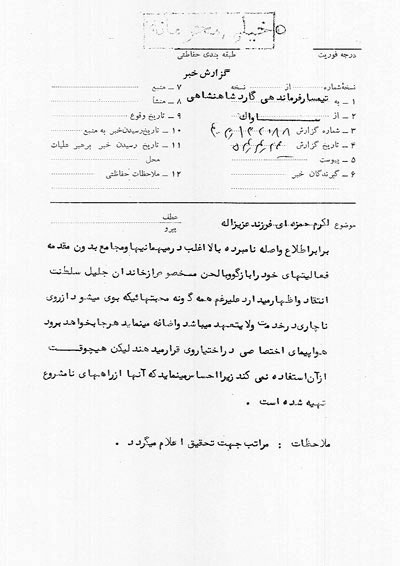 خیلی محرمانه
درجه فوریت
طبقه بندی حفاظتی
گزارش خبر
نسخهٔ شماره از نسخه
۱ – به تیمسار فرماندهی گارد شاهنشاهی
۲ – از ســـــاواك
۳ – شماره گزارش
۴ – تاریخ گزارش
۵ – پیوست
۶ – گیرندگان خبر
۷ – منبع
۸ – منشأ
۹ – تاریخ وقوع
۱۰ – تاریخ رسیدن خبر به منبع
۱۱ – تاریخ رسیدن خبر برهبر عملیات محل
۱۲ – ملاحظات حفاظتی
موضوع اکرم حمزه ای فرزند عزیزاله
عطف
پیرو
برابر اطلاع واصله نامبرده بالا اغلب در میهمانیها و مجامع بدون مقدمه
فعالیتهای خود را بازگو و با لحن مخصوصی از خاندان جلیل سلطنت
انتقاد و اظهار میدارد علیرغم همه گونه محبتهائیکه بوی میشود از روی
ناچاری در خدمت ولایتعهد میباشد و اضافه مینماید هر جا بخواهد برود
هواپیمای اختصاصی در اختیار وی قرار میدهند لیکن هیچوقت
از آن استفاده نمی کند زیرا احساس مینماید که آنها از راههای نامشروع
تهیه شده است .
ملاحظات : مراتب جهت تحقیق اعلام میگردد .